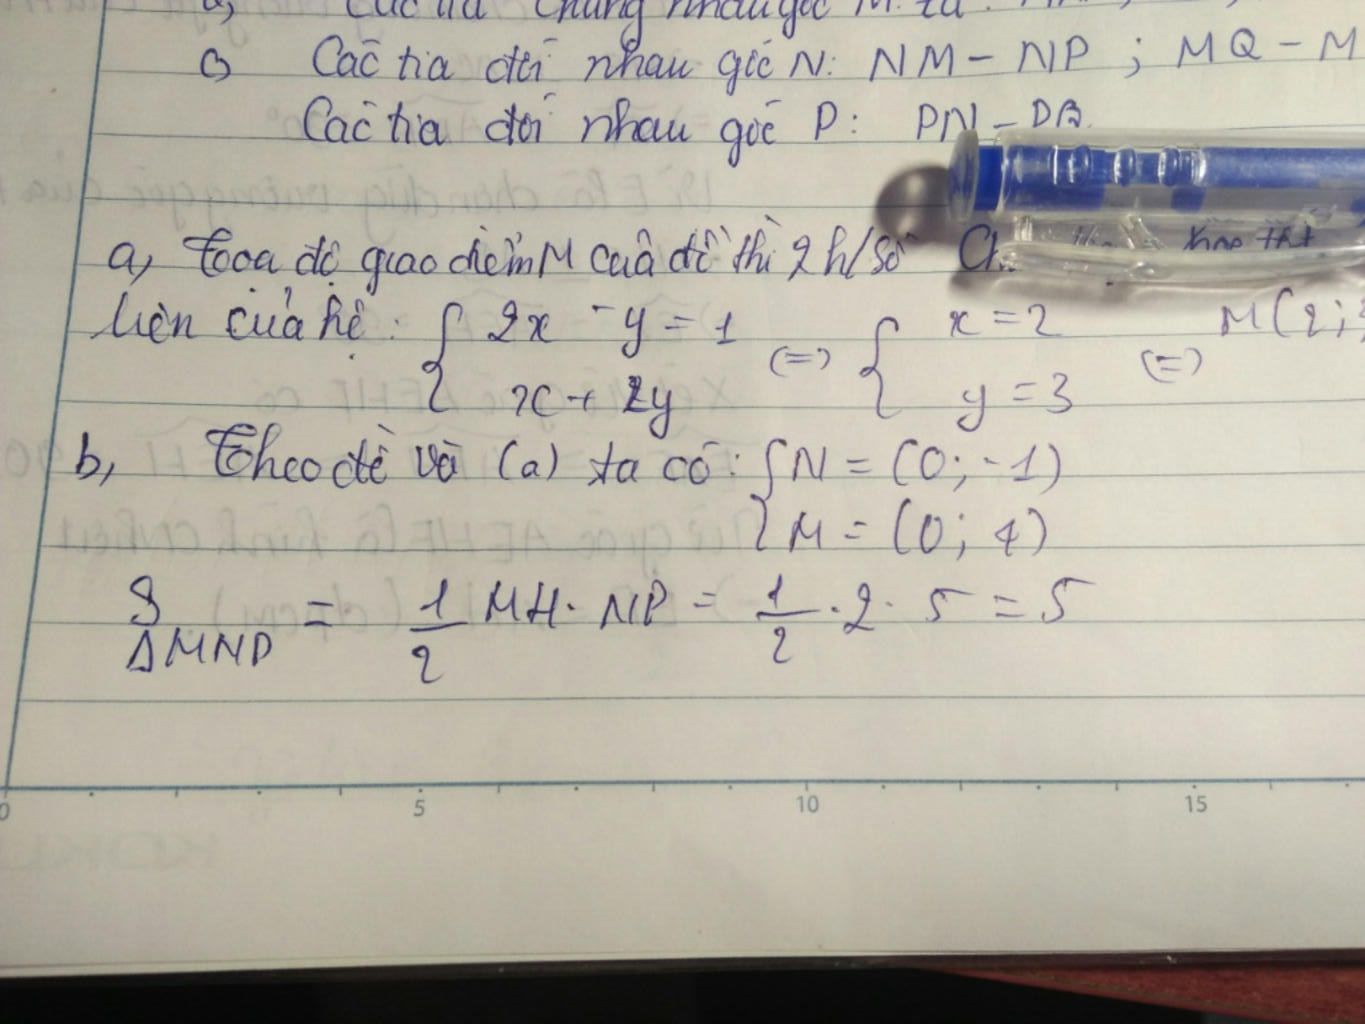 Các tia chung nhau gốc M:
c, Các tia đối nhau gốc N: NM - NP ; MQ - M
Các tia đối nhau gốc P: PN -
a, Tọa độ giao điểm M của đồ thì 2 h/số
liên của hệ: { 2x - y = 1 (=) { x = 2 (=) M(2;
x + 2y y = 3
b, Theo đề và (a) ta có: { N = (0; -1)
M = (0; 4)
S ΔMNP = 1/2 MH. NP = 1/2 . 2. 5 = 5
0 5 10 15